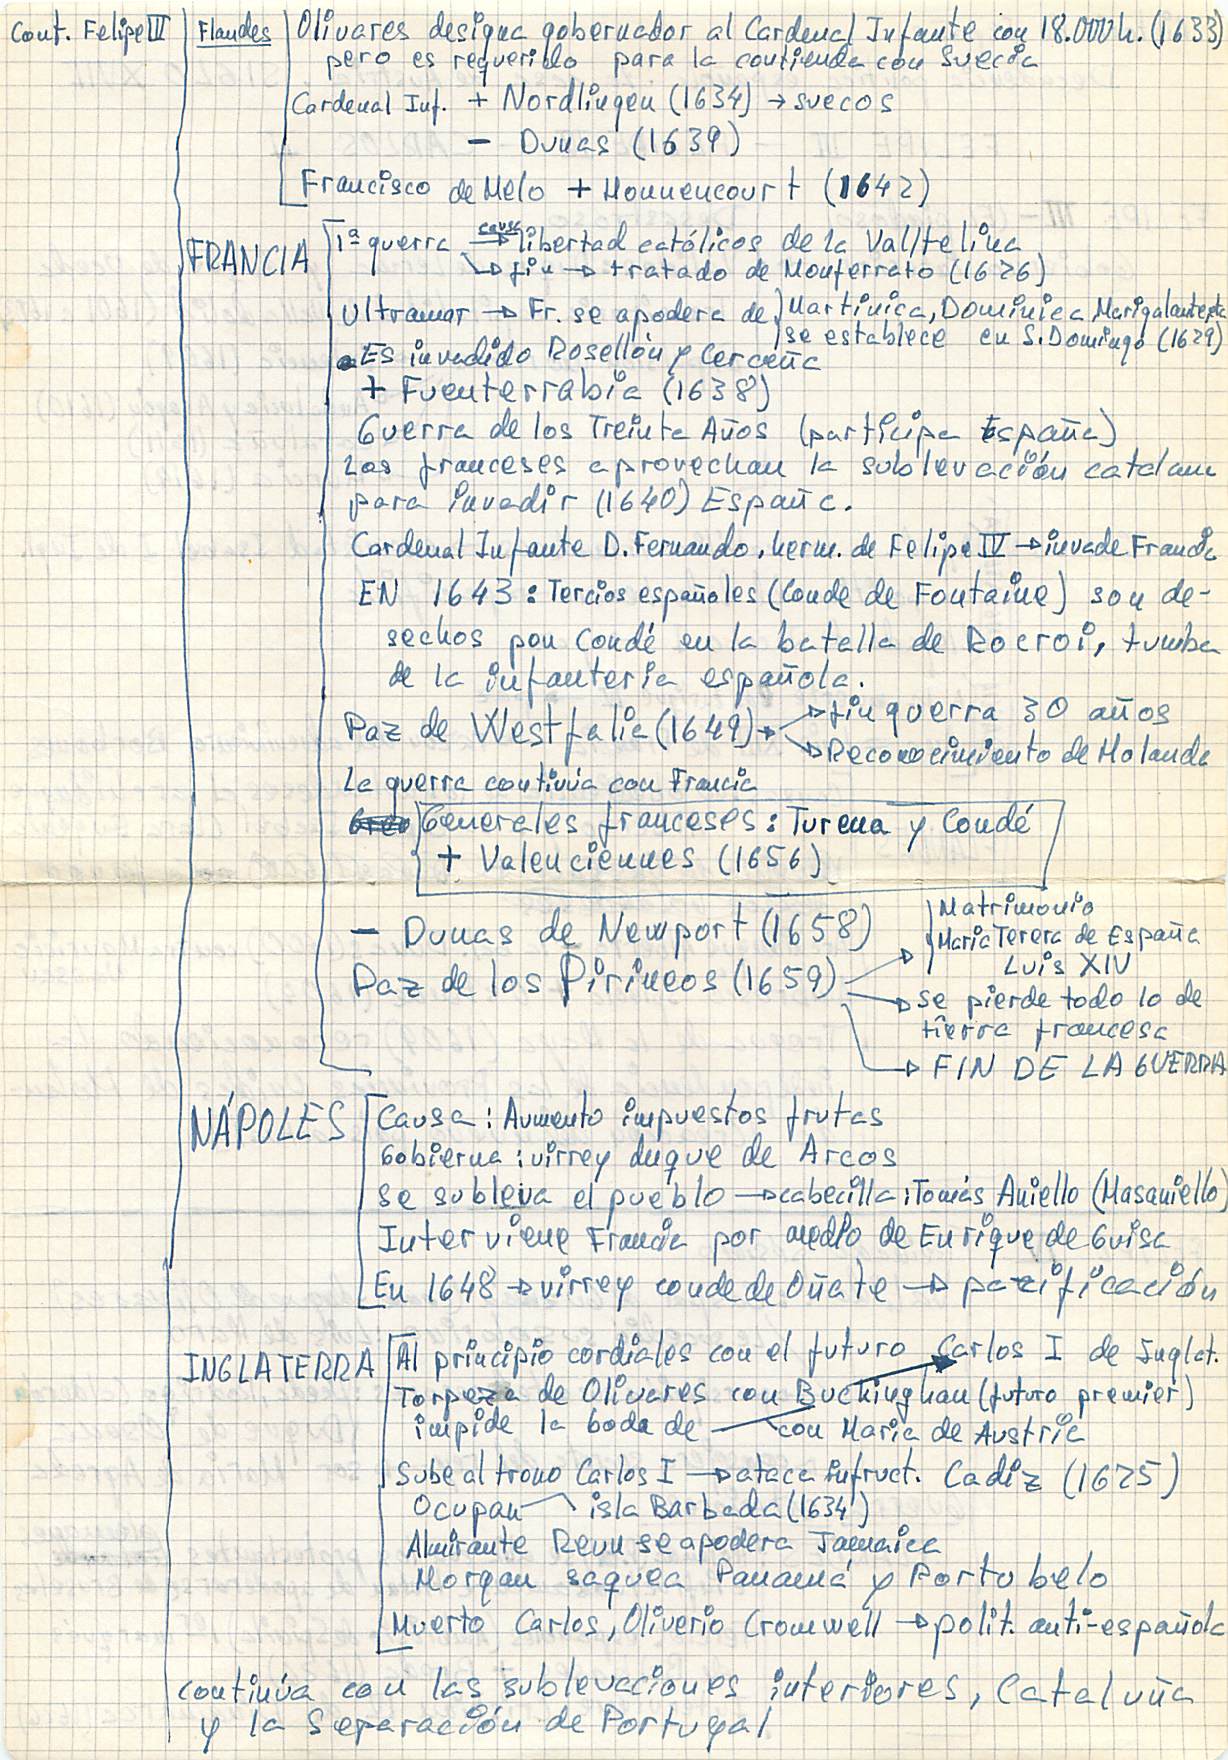 Cont. Felipe III Flandes Olivares designa gobernador al Cardenal Infante con 18.000 h. (1633)
pero es requerido para la contienda con Suecia
Cardenal Inf. + Nordlingen (1634) → suecos
- Dunas (1639)
Francisco de Melo + Honnencourt (1642)
FRANCIA 1ª guerra causa → libertad católicos de la Valltelina
→ fin → tratado de Monferrato (1626)
Ultramar → Fr. se apodera de Martinica, Dominica, Marigalante, etc
se establece en S. Domingo (1629)
Es invadido Rosellón y Cerceña
+ Fuenterrabia (1638)
Guerra de los Treinta Años (participa España)
Los franceses aprovechan la sublevación catalana
para invadir (1640) España.
Cardenal Infante D. Fernando, herm. de Felipe IV → invade Francia
EN 1643: Tercios españoles (Conde de Fontaine) son de-
sechos pon Condé en la batalla de Rocroi, tumba
de la infanteria española.
Paz de Westfalia (1649) → fin guerra 30 años
→ Reconocimiento de Holanda
La guerra continúa con Francia
Generales franceses: Turena y Condé
+ Valenciennes (1656)
- Dunas de Newport (1658)
Paz de los Pirineos (1659) → Matrimonio
Maria Terera de España
Luis XIV
→ se pierde todo lo de
tierra francesa
→ FIN DE LA GUERRA
NÁPOLES Causa: Aumento impuestos frutas
Gobierna: virrey duque de Arcos
se subleva el pueblo → cabecilla: Tomás Aniello (Masaniello)
Interviene Francia por medio de Enrique de Guisa
En 1648 → virrey conde de Oñate → pazificación
INGLATERRA Al principio cordiales con el futuro Carlos I de Inglat.
Torpeza de Olivares con Buckinghan (futuro premier)
impide la boda de con Maria de Austria
Sube al trono Carlos I → ataca infruct. Cadiz (1625)
Ocupan isla Barbada (1634)
Almirante Penn se apodera Jamaica
Morgan saquea Panamá y Portobelo
Muerto Carlos, Oliverio Cromwell → polit. anti-española
continúa con las sublevaciones interiores, Cataluña
y la Separación de Portugal